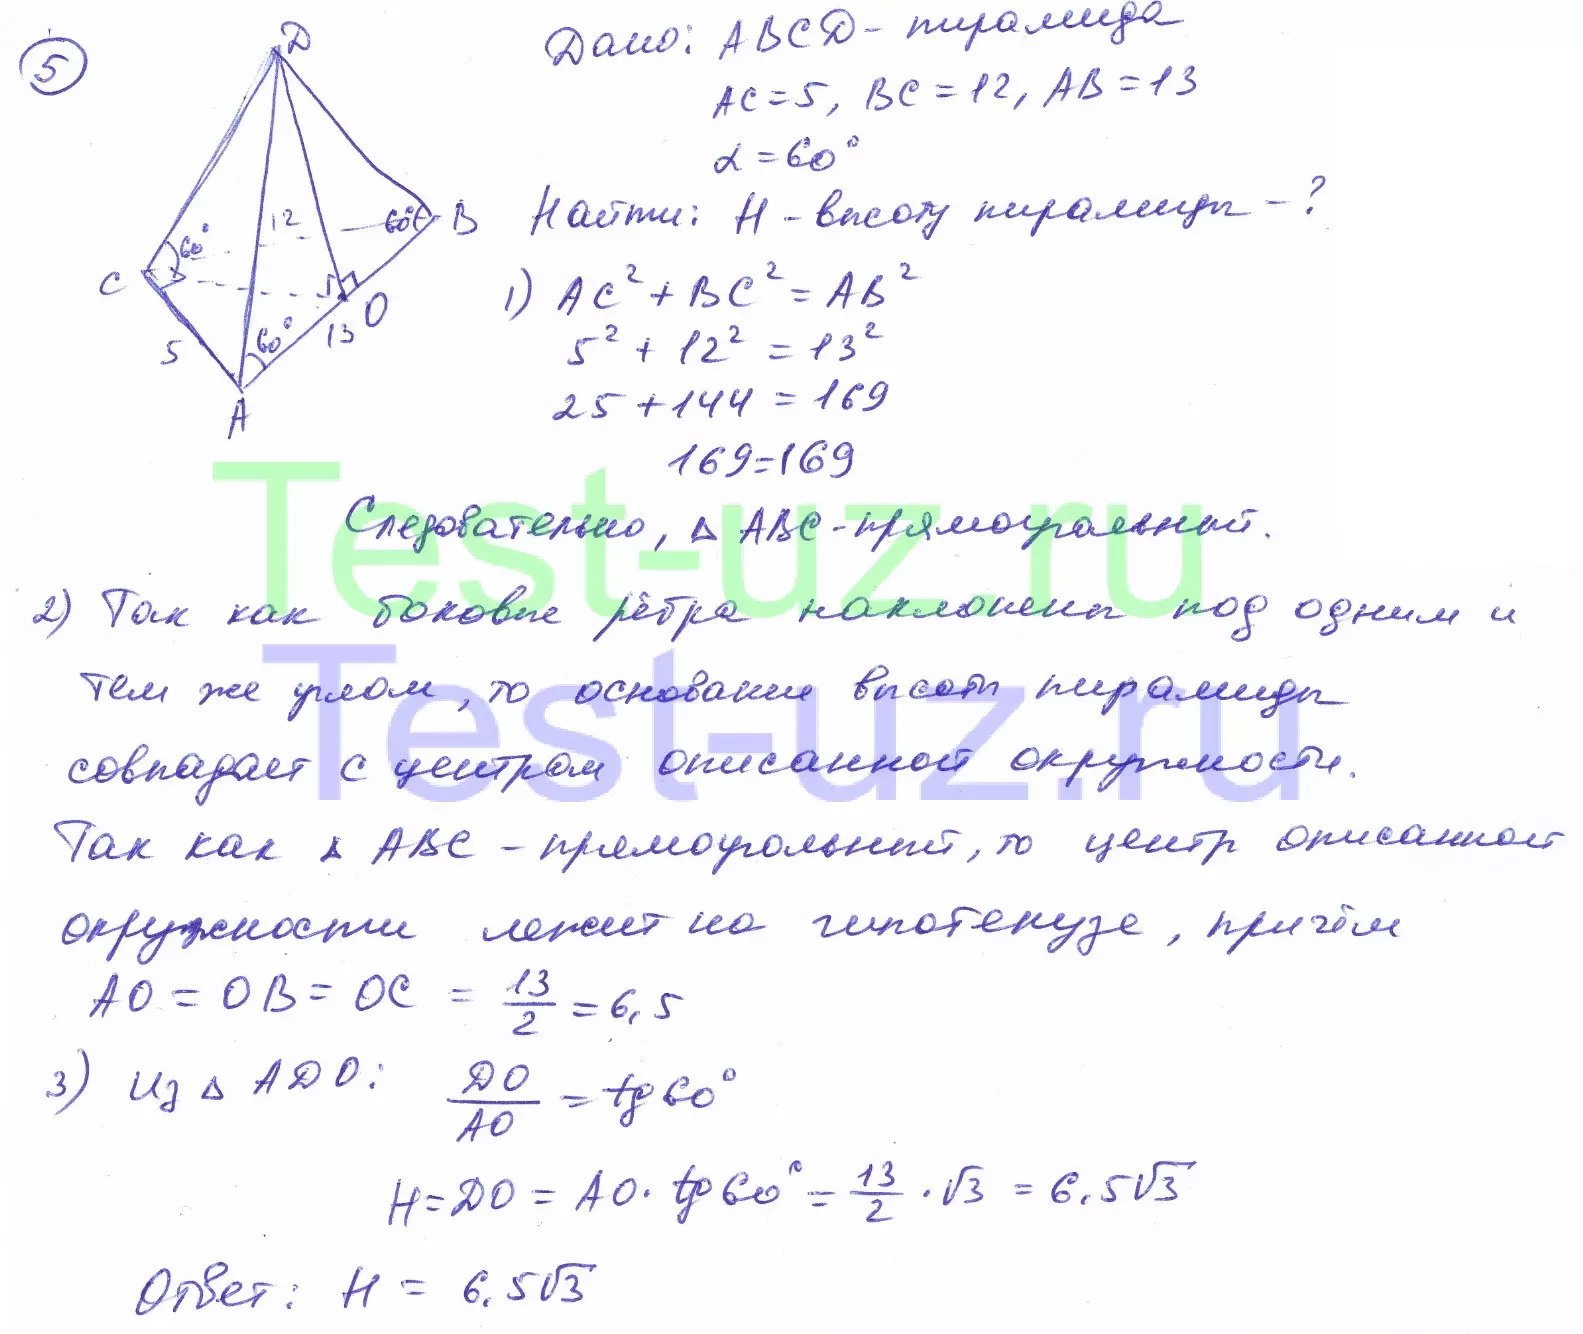 5
D
60°
12
60°
B
C
O
5
60°
13
A
Дано: ABCD - пирамида
AC = 5, BC = 12, AB = 13
α = 60°
Найти: H - высоту пирамиды - ?
1) AC² + BC² = AB²
5² + 12² = 13²
25 + 144 = 169
169 = 169
Следовательно, △ ABC - прямоугольный.
2) Так как боковые рёбра наклонены под одним и
тем же углом, то основание высоты пирамиды
совпадает с центром описанной окружности.
Так как △ ABC - прямоугольный, то центр описанной
окружности лежит на гипотенузе, причём
AO = OB = OC = 13/2 = 6,5
3) Из △ ADO: DO/AO = tg 60°
H = DO = AO · tg 60° = 13/2 · √3 = 6,5√3
Ответ: H = 6,5√3
Test-uz.ru
Test-uz.ru